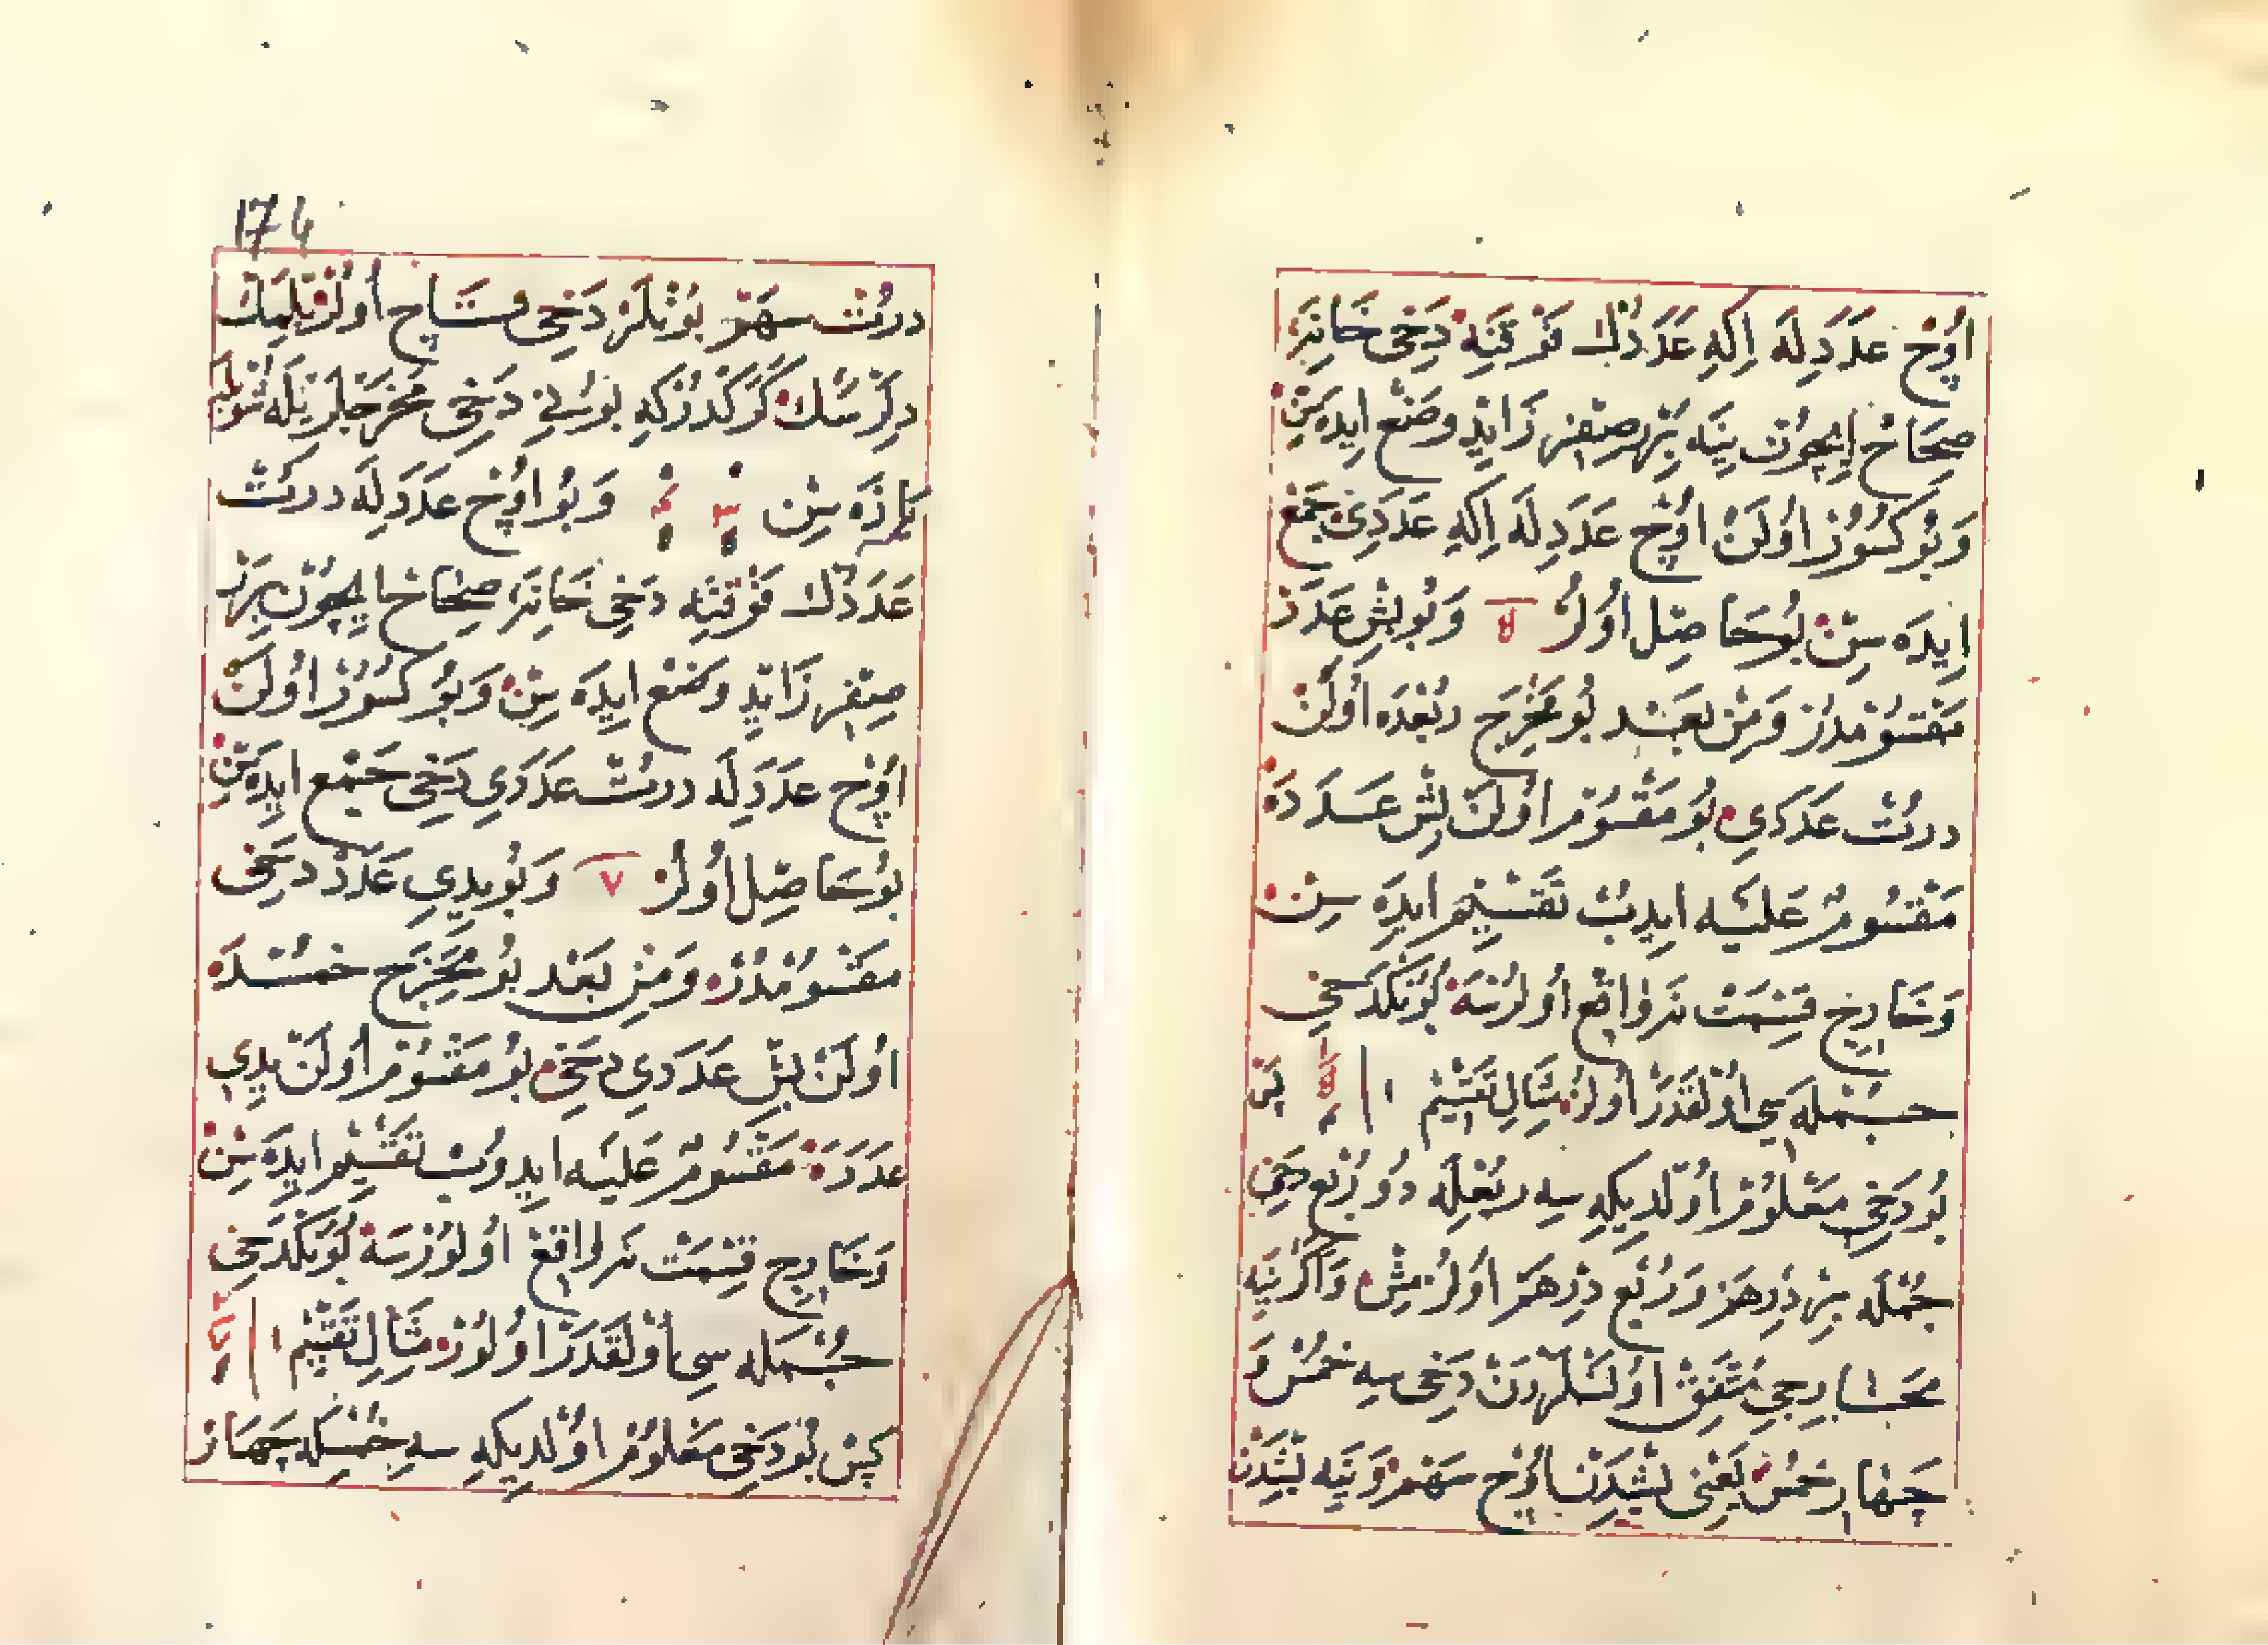 اُوْچ عَدَدِلَه اِكِه عَدَدُڭ فَوْقِنَه دَخِى خَانَۀِ
صِحَاح اِيچُون يِنَه بِرْ صِفِر زَائِد وَضْع ايدَه سِن
وَبُو كُسُوْر اُولَنْ اُوْچ عَدَدِلَه اِكِه عَدَدِى جَمْع
ايدَه سِنْ بُو حَاصِل اُولُر ٥ وَبُو بَشْ عَدَدْ
مَقْسُوْمدُرْ وَمِنْ بَعْد بُو مَخْرَج رُبْعْدَه اُولَنْ
دررْت عَدَدِى بُو مَقْسُوْم اُولَنْ بَشْ عَدَدَه
مَقْسُومٌ عَلَيْه ايدِبْ تَقْسِيْم ايدَه سِن
وَخَارِج قِسْمَتْ نَه وَاقِع اُولُرْسَه بُونْڭ دَخِى
جُمْلَه سِى اُولْقَدَرْ اُولُرْ مِثَالِ تَقْسِيْم
بُو دَخِى مَعْلُوْم اُولْدِيكِه سِه رُبْعِلَه دُو رُبْع دَخِى
جُمْلَه بِرْ دِرْهَمْ وَرُبْع دِرْهَمْ اُولُرْمِشْ وَاكَرْ يِنَه
مَخَارِجِى مُتَّفِقْ اُولَنْلَرْدَنْ دَخِى سِه خُمْس وَ
چَهَار خُمْسْ يَعْنِى بَشْدَنْ اُوْچ سَهْم وَيِنَه بَشْدَنْ
174
دررْت سَهْم بُونْلَرْ دَخِى نِسَاح اُولُرْ بِلْمَكْ
دِلَرْسَڭ كَرَكْدُرْكِه بُو سِنِى دَخِى مَخْرَجْلَرِيلَه شُويْلَه
يَازَه سِن ٣ ٤ وَبُو اُوْچ عَدَدِلَه دررْت
عَدَدُڭ فَوْقِنَه دَخِى خَانَۀِ صِحَاح اِيچُوْن بِرَرْ
صِفِر زَائِد وَضْع ايدَه سِنْ وَبُو كُسُوْر اُولَنْ
اُوْچ عَدَدِلَه دررْت عَدَدِى دَخِى جَمْع ايدَه سِن
بُو حَاصِل اُولُرْ ٧ وَبُو يِدِى عَدَدْ دَخِى
مَقْسُوْمدُرْ وَمِنْ بَعْد بُو مَخْرَج خُمْسْدَه
اُولَنْ بَشْ عَدَدِى دَخِى بُو مَقْسُوْم اُولَنْ يِدِى
عَدَدَه مَقْسُومٌ عَلَيْه ايدُوبْ تَقْسِيْم ايدَه سِنْ
وَخَارِج قِسْمَتْ نَه وَاقِعْ اُولُوْرسَه بُونْڭ دَخِى
جُمْلَه سِى اُولْقَدَرْ اُولُوْرْ مِثَالِ تَقْسِيْم
بُو دَخِى مَعْلُوْم اُولْدِيكِه سِه خُمْسِلَه چَهَارْ